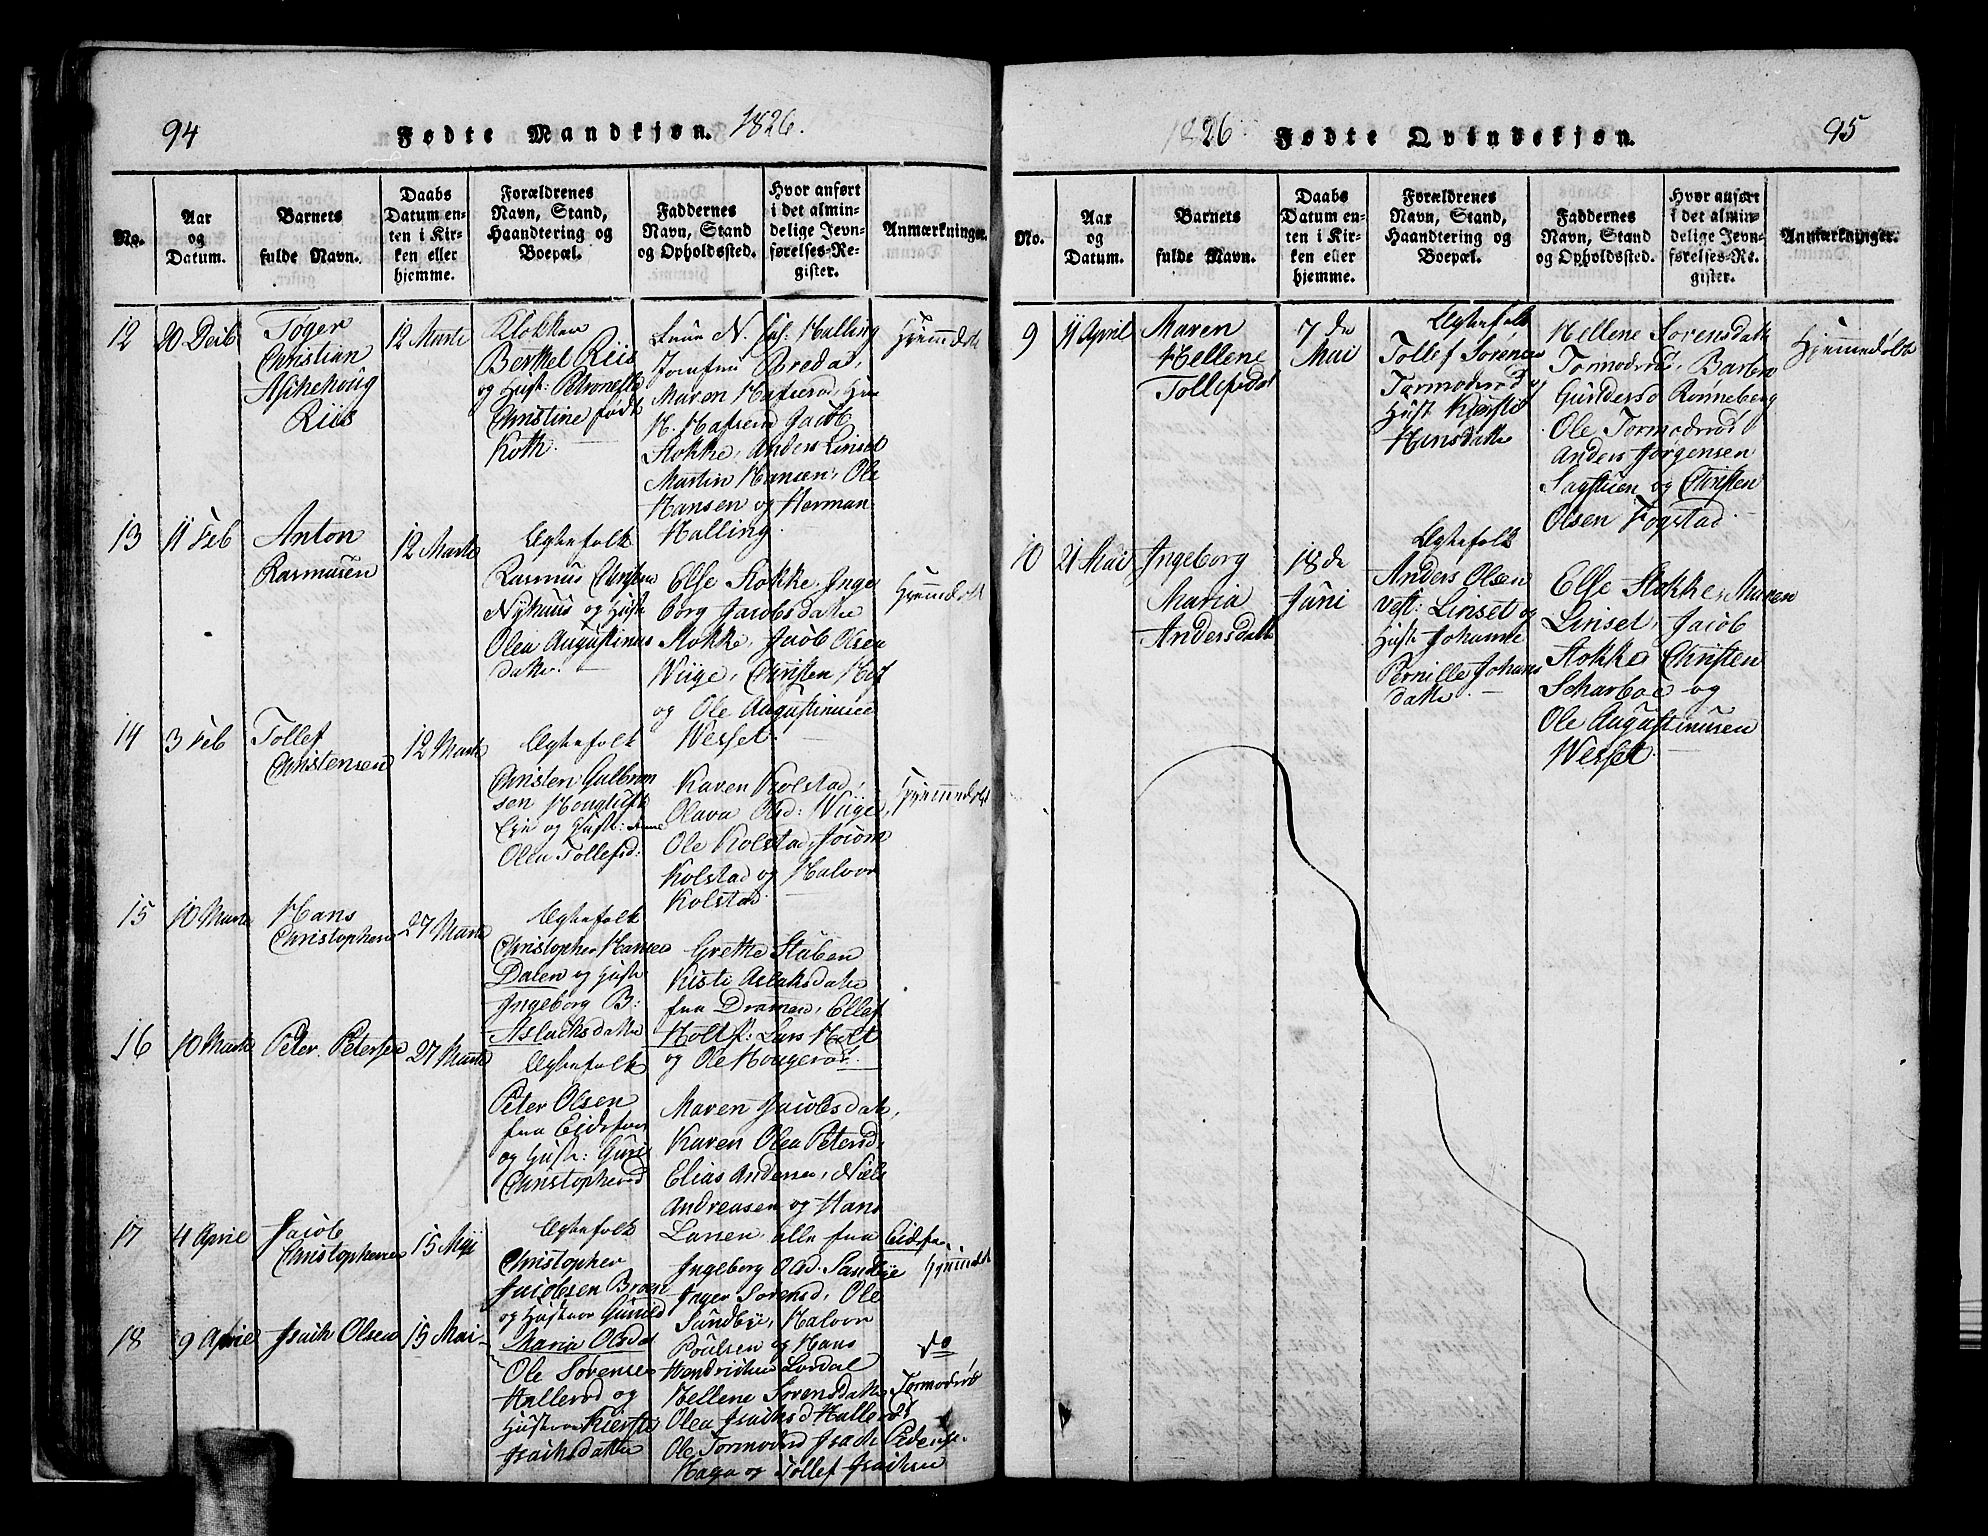 94 Fødte Mandkjøn. 1826.
No.
Aar
og
Datum.
Barnets
fulde Navn.
Daabs
Datum en-
ten i Kir-
ken eller
hjemme.
Forældrenes
Navn, Stand,
Haandtering og
Boepæl.
Faddernes
Navn, Stand
og Opholdssted.
Hvor anført
i det almin-
delige Jevn-
førelses-Re-
gister.
Anmærkninger.
12
20 Decb
Tøger
Christian
Aschehoug
Riis
12 Marts
Klokker
Berthel Riis
og Hust: Petronella
Christine født
Koth.
Halling
Jomfru Breda,
Maren Hafsrød,
H. Hafsrød Jacob
Stokke, Anders Linset
Martin Hansen, Ole
Hansen og Herman
Halling.
Hjemmedøbt
13
11 Feb
Anton
Rasmusen
12 Marts
Egtefolk
Rasmus Christens
Nyhuus og Hust
Olea Augustinus
datter.
Else Stokke, Inge
borg Jacobsdatter
Stokke, Jacob Olsen
Wiige, Christen Hof
og Ole Augustinusen
Wesset.
Hjemmedøbt
14
3 Feb
Tollef
Christensen
12 Marts
Egtefolk
Christen Gulbran
sen
Eie og Hust: Anne
Olea Tollefsd:
Karen Kolstad,
Olava Olsd: Wiige,
Ole Kolstad, Joiom
Kolstad og Halvor
Kolstad.
Hjemmedøbt
15
10 Marts
Hans
Christophersen
27 Marts
Egtefolk
Christopher Hansen
Dalen og Hust
Ingeborg B:
Aslachsdatter
Grethe Stuben
Kisti Aslaksdatter
fra Dramen, Ellef
Holt f: Lars Holt
og Ole Hougerød.
16
10 Marts
Peter Petersen
27 Marts
Egtefolk
Peter Olsen
fra Eidsfos
og Hust: Guri
Christophersd
Maren Jacobsdatter,
Karen Olea Petersd,
Elias Andersen, Niels
Andreasen og Hans
Larsen, alle fra Eidsfos
17
4 April
Jacob
Christophersen
15 Maji
Egtefolk
Christopher
Jacobsen Braen
og Hustrue Gunild
Maria Olsdat
Ingeborg Olsd: Sandbye
Inger Sorensd, Ole
Sundbye, Halvor
Poulsen og Hans
Hendrichsen Lordal
Hjemmedøbt
18
9 April
Isach Olsen
15 Mai
Ole Sørensen
Hallerød og
Hustrue Kierste
Isachsdatter
Hellene Sorensdatter Tormodrød
Olea Isachsd Hallerød
Ole Tormodrød Isach Pedersen
Haga og Tollef Isachsen
do
1826 Fødte Qvindekjøn. 95
No.
Aar
og
Datum.
Barnets
fulde Navn.
Daabs
Datum en-
ten i Kir-
ken eller
hjemme.
Forældrenes
Navn, Stand,
Haandtering og
Boepæl.
Faddernes
Navn, Stand
og Opholdssted.
Hvor anført
i det almin-
delige Jevn-
førelses-Re-
gister.
Anmærkninger.
9
11 April
Maren
Hellene
Tollefsdat
7 de
Mai
Egtefolk
Tollef Sorensen
Tormodsrød og
Hust Kiersti
Hansdatter
Hellene Sorensdatter
Tormodrød, Barbro
Gundersd Rønneberg
Ole Tormodrød
Anders Jørgensen
Sagstuen og Christen
Olsen Fogstad.
Hjemmedøbt
10
21 Mai
Ingeborg
Maria
Andersdatter
18 de
Juni
Egtefolk
Anders Olsen
vest: Linset og
Hust Johanne
Pernille Johans
datter.
Else Stokke, Maren
Linset, Jacob
Stokke, Christen
Scharboe og
Ole Augustinusen
Wesset.